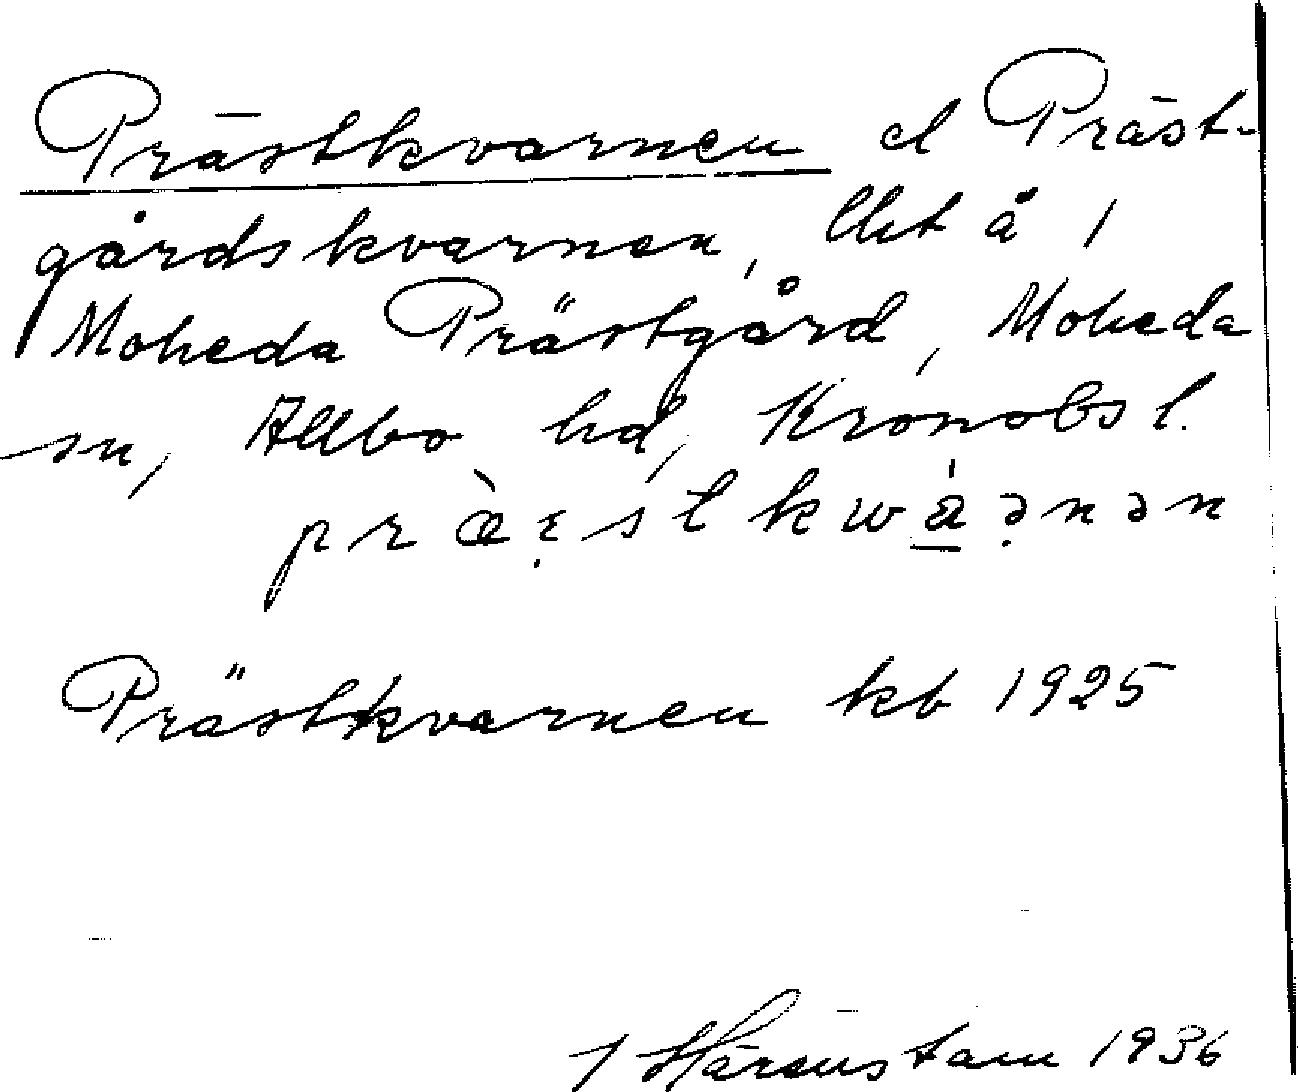 Prästkvarnen el Präst-
gårdskvarnen, lht å 1
Moheda Prästgård, Moheda
sn, Allbo hd, Kronobs l.
præ̀ɛ̣stkwá̱ə̣nən
Prästkvarnen kb 1925
1936